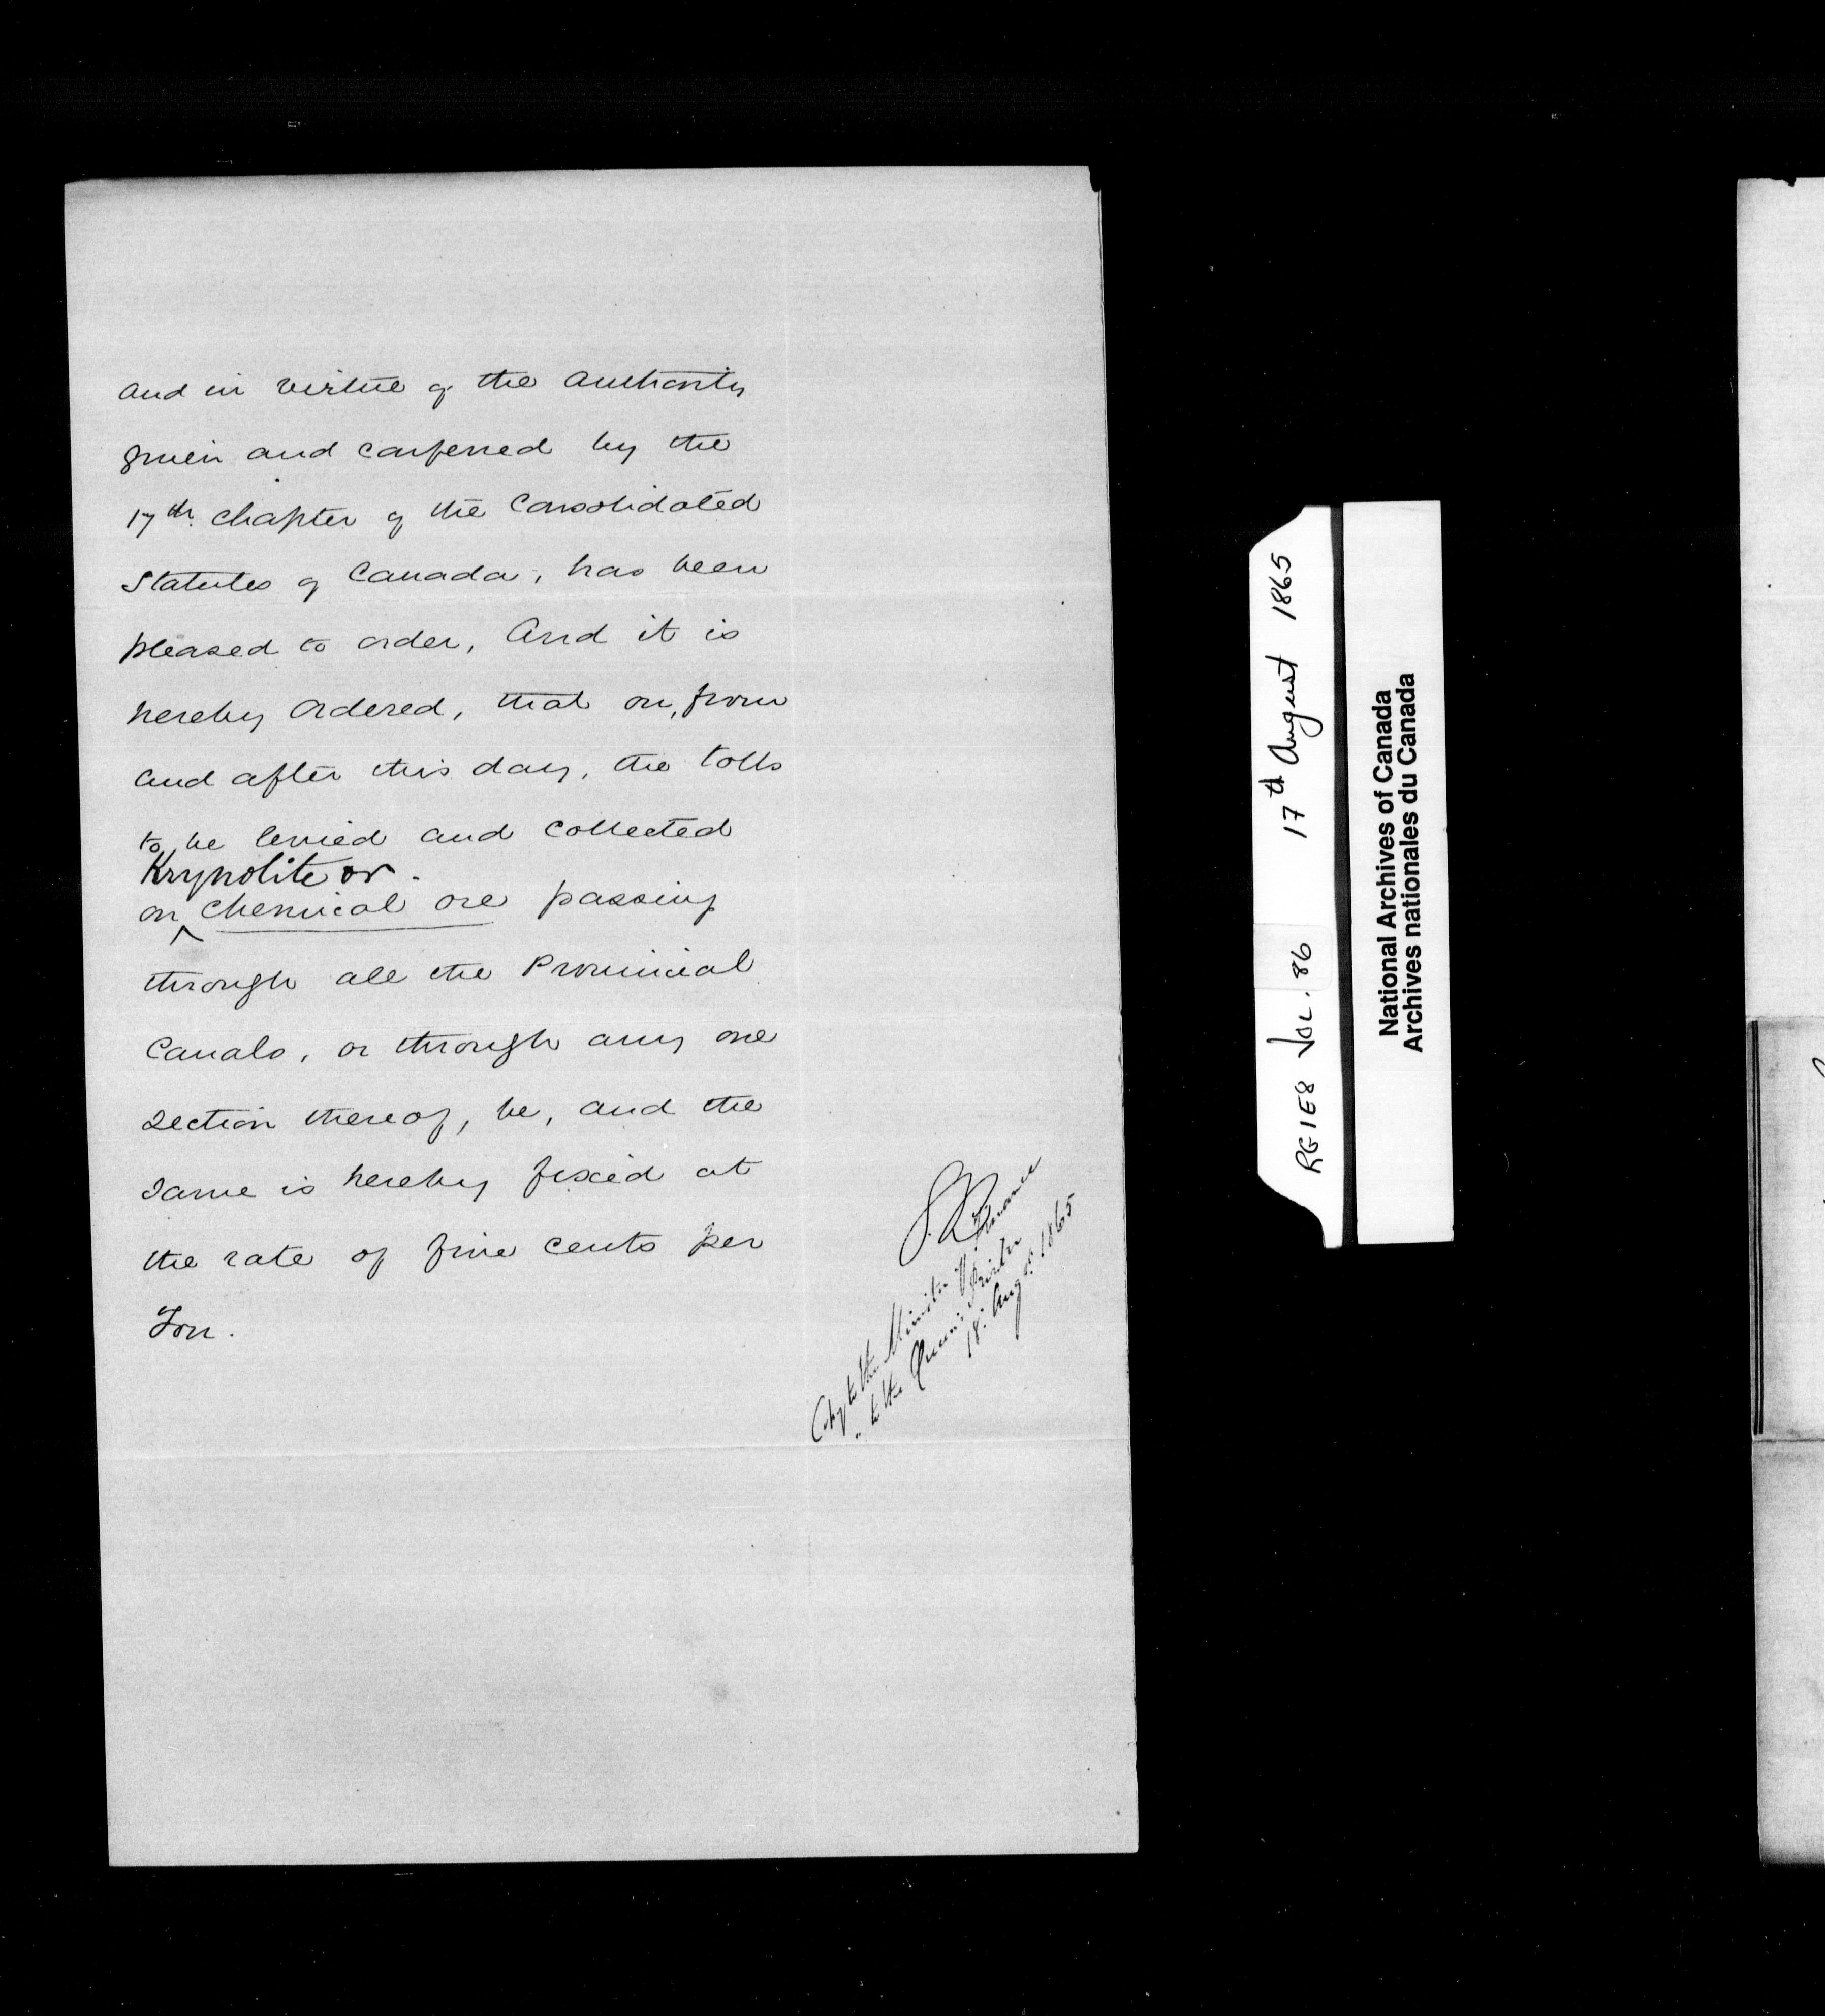 and in virtue of the authority
given and conferred by the
17th. chapter of the Consolidated
Statutes of Canada, has been
pleased to order, And it is
hereby ordered, that on, from
and after this day, the tolls
to be levied and collected
Krynolite or
on ^ chemical ore passing
through all the Provincial
Canals, or through any one
section thereof, be, and the
same is hereby fixed at
the rate of five cents per
Ton.
Copy to the Minister of Finance
" to the Queen's Printer
18. Aug. 1865
RG1E8 VOL. 86 17th August 1865
National Archives of Canada
Archives nationales du Canada